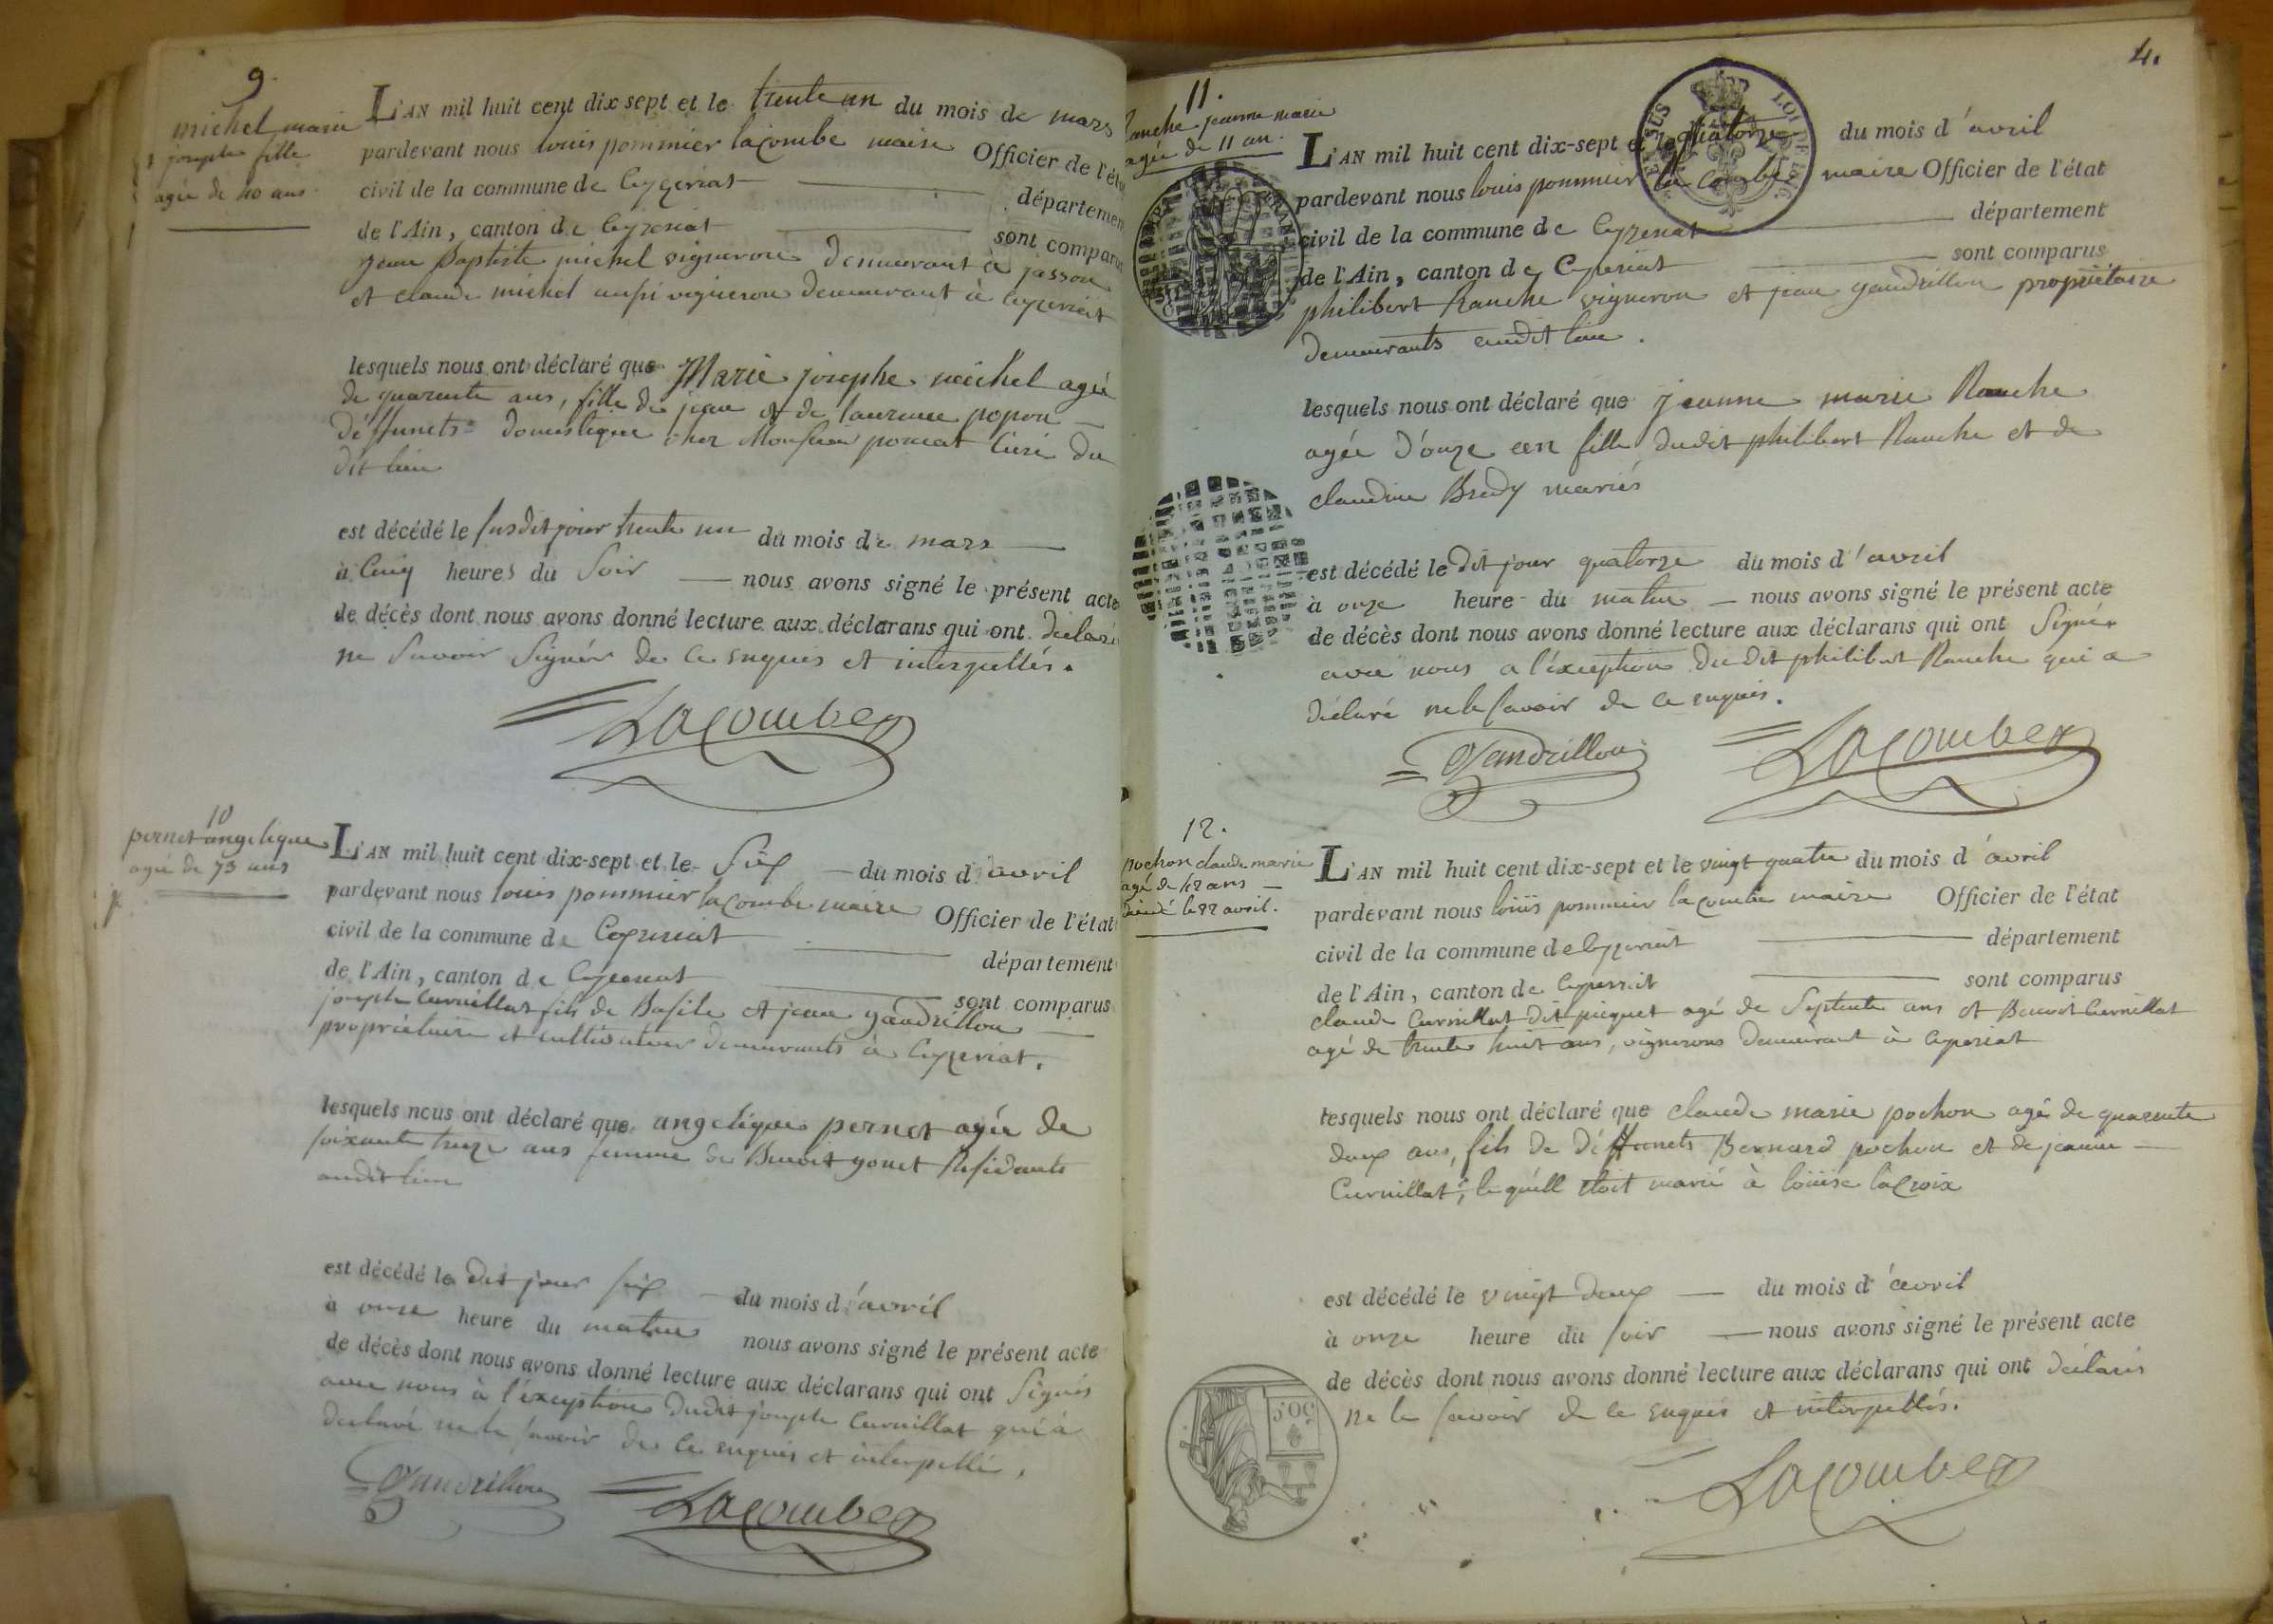 9.
michel marie
josephe fille
agée de 40 ans
L'AN mil huit cent dix sept et le trente un du mois de mars
pardevant nous louis pommier lacombe maire Officier de l'état
civil de la commune de Ceyzeriat département
de l'Ain, canton de Ceyzeriat sont comparus
jean baptiste michel vigneron demeurant à jasseron
et claude michel aussi vigneron demeurant à Ceyzeriat
lesquels nous ont déclaré que Marie josephe michel agée
de quarente ans, fille de jean et de laurence popon
déffunets domestique chez Monsieur poncat Curé du
dit lieu
est décédé le susdit jour trente un du mois de mars
à Cinq heures du soir nous avons signé le présent acte
de décès dont nous avons donné lecture aux déclarans qui ont déclaré
ne savoir signér de ce enquis et interpellés.
Lacombe
10
pernet angelique
agée de 73 ans
L'AN mil huit cent dix-sept et le six du mois d'avril
pardevant nous louis pommier lacombe maire Officier de l'état
civil de la commune de Ceyzeriat département
de l'Ain, canton de Ceyzeriat sont comparus
joseph Curnillat fils de Basile et jean gandrillon
propriétaire et cultivateur demeurants à Ceyzeriat.
lesquels nous ont déclaré que angelique pernet agée de
soixante treize ans femme de Benoit gonet Residants
audit lieu
est décédé le dit jour six du mois d'avril
à onze heure du matin nous avons signé le présent acte
de décès dont nous avons donné lecture aux déclarans qui ont signés
avec nous à l'éxception dudit joseph Curnillat qui à
déclaré ne le savoir de ce enquis et interpellé.
Gandrillon Lacombe
4.
11.
Ranche jeanne marie
agée de 11 an.
L'AN mil huit cent dix-sept et le quatorze du mois d'avril
pardevant nous louis pommier la Combe maire Officier de l'état
civil de la commune de Ceyzeriat département
de l'Ain, canton de Ceyzeriat sont comparus
philibert Ranche vigneron et jean gandrillon propriétaire
demeurants audit lieu.
lesquels nous ont déclaré que jeanne marie Ranche
agée d'onze an fille dudit philibert Ranche et de
claudine Bredy mariés
est décédé le dit jour quatorze du mois d'avril
à onze heure du matin nous avons signé le présent acte
de décès dont nous avons donné lecture aux déclarans qui ont signér
avec nous a l'éxception du dit philibert Ranche qui a
déclaré ne le savoir de ce enquis.
Gandrillon Lacombe
12.
pochon claude marie
agé de 42 ans
décédé le 22 avril.
L'AN mil huit cent dix-sept et le vingt quatre du mois d'avril
pardevant nous louis pommier lacombe maire Officier de l'état
civil de la commune de Ceyzeriat département
de l'Ain, canton de Ceyzeriat sont comparus
claude Curnillat dit piquet agé de septente ans et Benoit Curnillat
agé de trente huit ans, vignerons demeurant à Ceyzeriat
lesquels nous ont déclaré que claude marie pochon agé de quarente
deux ans, fils de déffunets Bernard pochon et de jeanne
Curnillat, lequ'ell étoit marié à louise laCroix
est décédé le vingt deux du mois d'avril
à onze heure du soir nous avons signé le présent acte
de décès dont nous avons donné lecture aux déclarans qui ont déclarés
ne le savoir de ce enquis et interpellés.
50 C
Lacombe